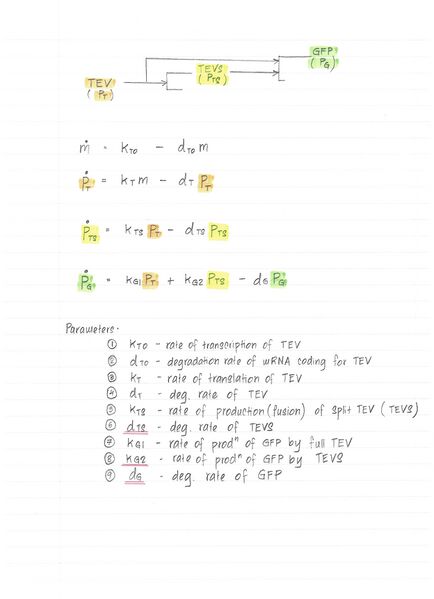 GFP
TEVS
(PG)
TEV
(PTS)
(PT)
ṁ = kTO - dTO m
ṖT = kT m - dT PT
ṖTS = kTS PT - dTS PTS
ṖG = kG1 PT + kG2 PTS - dG PG
Parameters -
① kTO - rate of transcription of TEV
② dTO - degradation rate of mRNA coding for TEV
③ kT - rate of translation of TEV
④ dT - deg. rate of TEV
⑤ kTS - rate of production (fusion) of split TEV (TEVS)
⑥ dTS - deg. rate of TEVS
⑦ kG1 - rate of prodⁿ of GFP by full TEV
⑧ kG2 - rate of prodⁿ of GFP by TEVS
⑨ dG - deg. rate of GFP